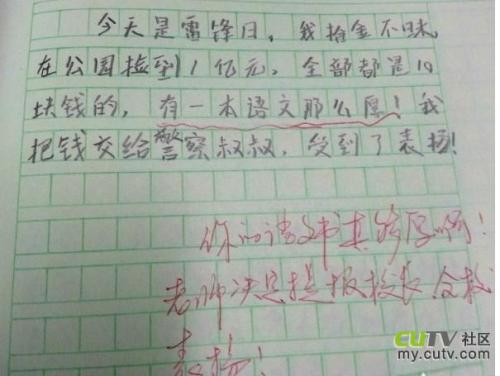 今天是雷锋日，我拾金不昧，
在公园捡到1亿元，全部都是10
块钱的，有一本语文那么愿！我
把钱交给警察叔叔，受到了表扬！
你的语文书真够厚啊！
老师决定提报校长，全校
表扬！
CUTV社区
my.cutv.com